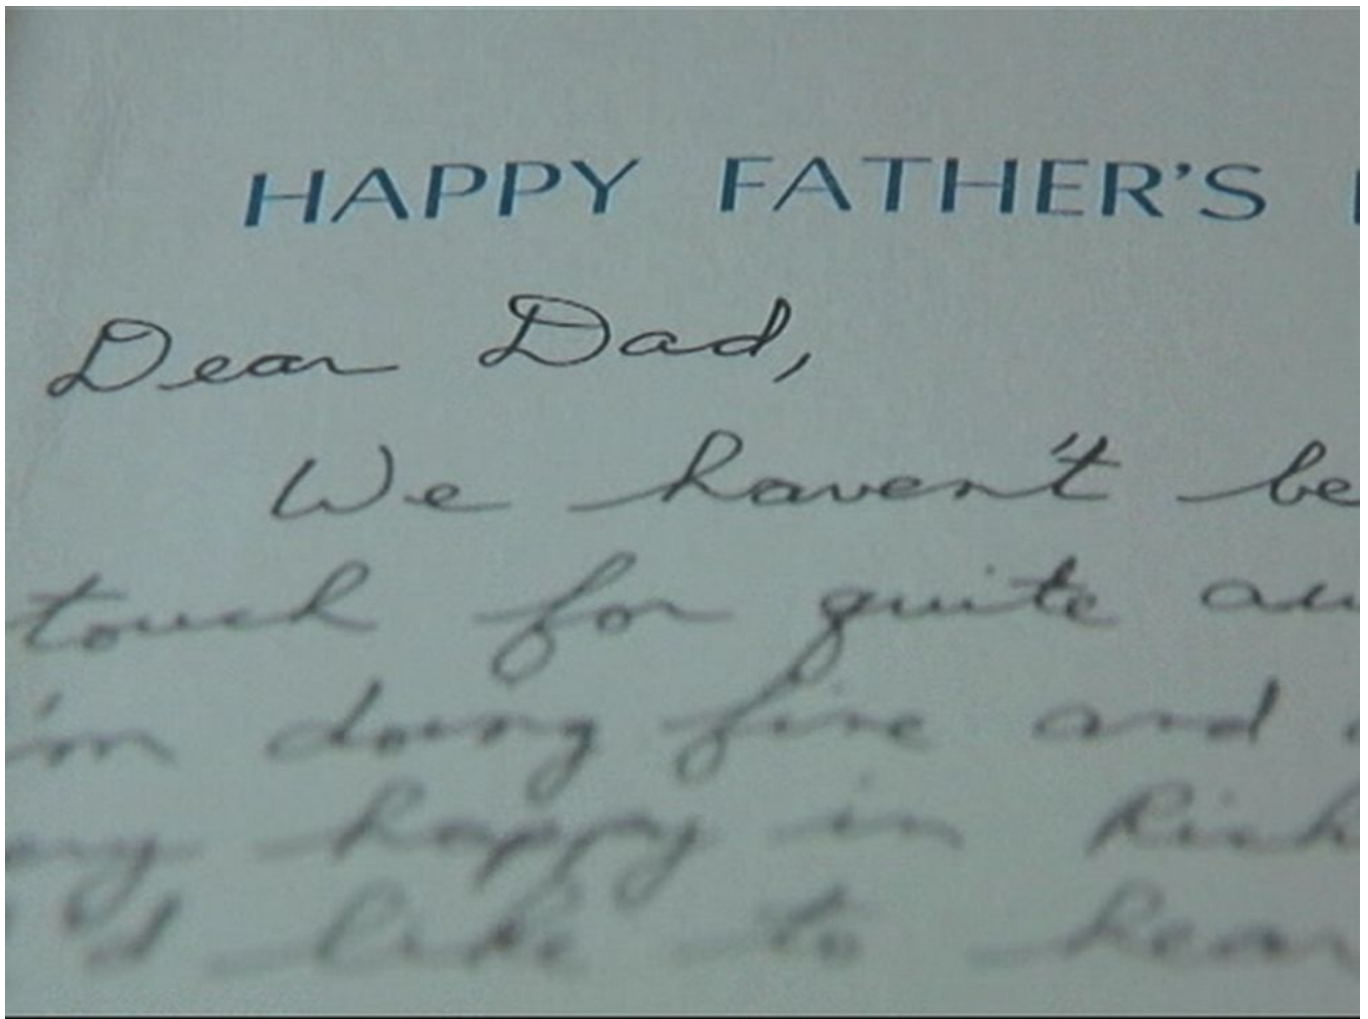 HAPPY FATHER'S
Dear Dad,
We haven't be
touch for quite aw
I'm doing fine and
happy in Rich
I'd like to hear